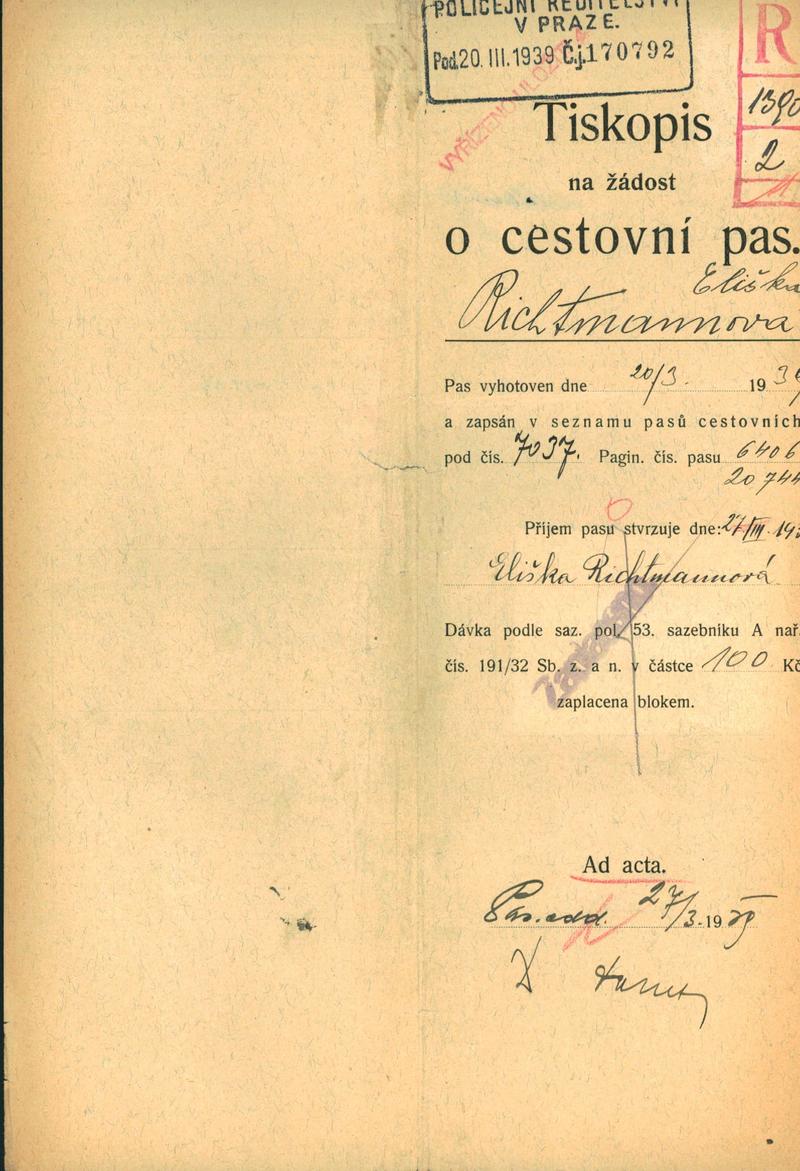 POLICEJNÍ ŘEDITELSTVÍ
V PRAZE.
Pod. 20. III. 1939 Č.j. 170792
R
1390
2
VYŘÍZENO ULOŽIT
Tiskopis
na žádost
o cestovní pas.
Eliška
Richtmannova
Pas vyhotoven dne 20/3. 1939
a zapsán v seznamu pasů cestovních
pod čís. 7037. Pagin. čís. pasu 6406
20744
Příjem pasu stvrzuje dne: 27/III. 193
Eliška Richtmannová
Dávka podle saz. pol. 53. sazebníku A nař.
čís. 191/32 Sb. z. a n. v částce 100 Kč
zaplacena blokem.
Ad acta.
27/3. 1939